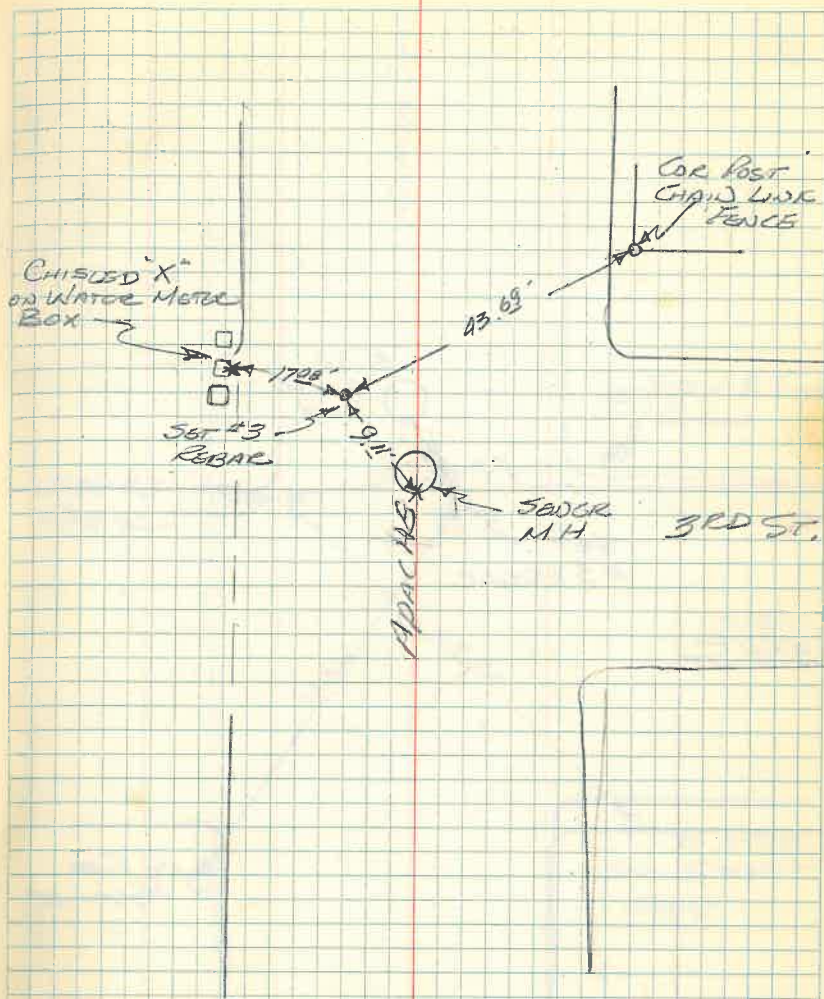 COR POST
CHAIN LINK
FENCE
CHISLED "X"
ON WATER METER
BOX
43.69'
17.08'
SET #3
REBAR
9.11'
SEWER
MH
3RD ST.
APACHE